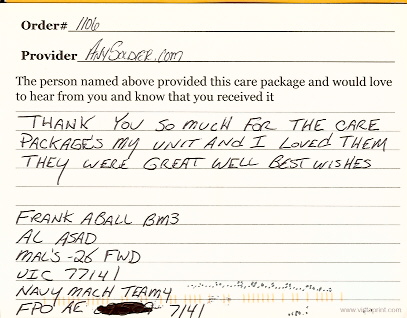 Order# 1106
Provider AnySoldier.com
The person named above provided this care package and would love
to hear from you and know that you received it
THANK YOU SO MUCH FOR THE CARE
PACKAGES MY UNIT AND I LOVED THEM
THEY WERE GREAT WELL BEST WISHES
FRANK ABALL BM3
AL ASAD
MAL'S -26 FWD
UIC 77141
NAVY MACH TEAM4
FPO AE 7141
www.vistaprint.com